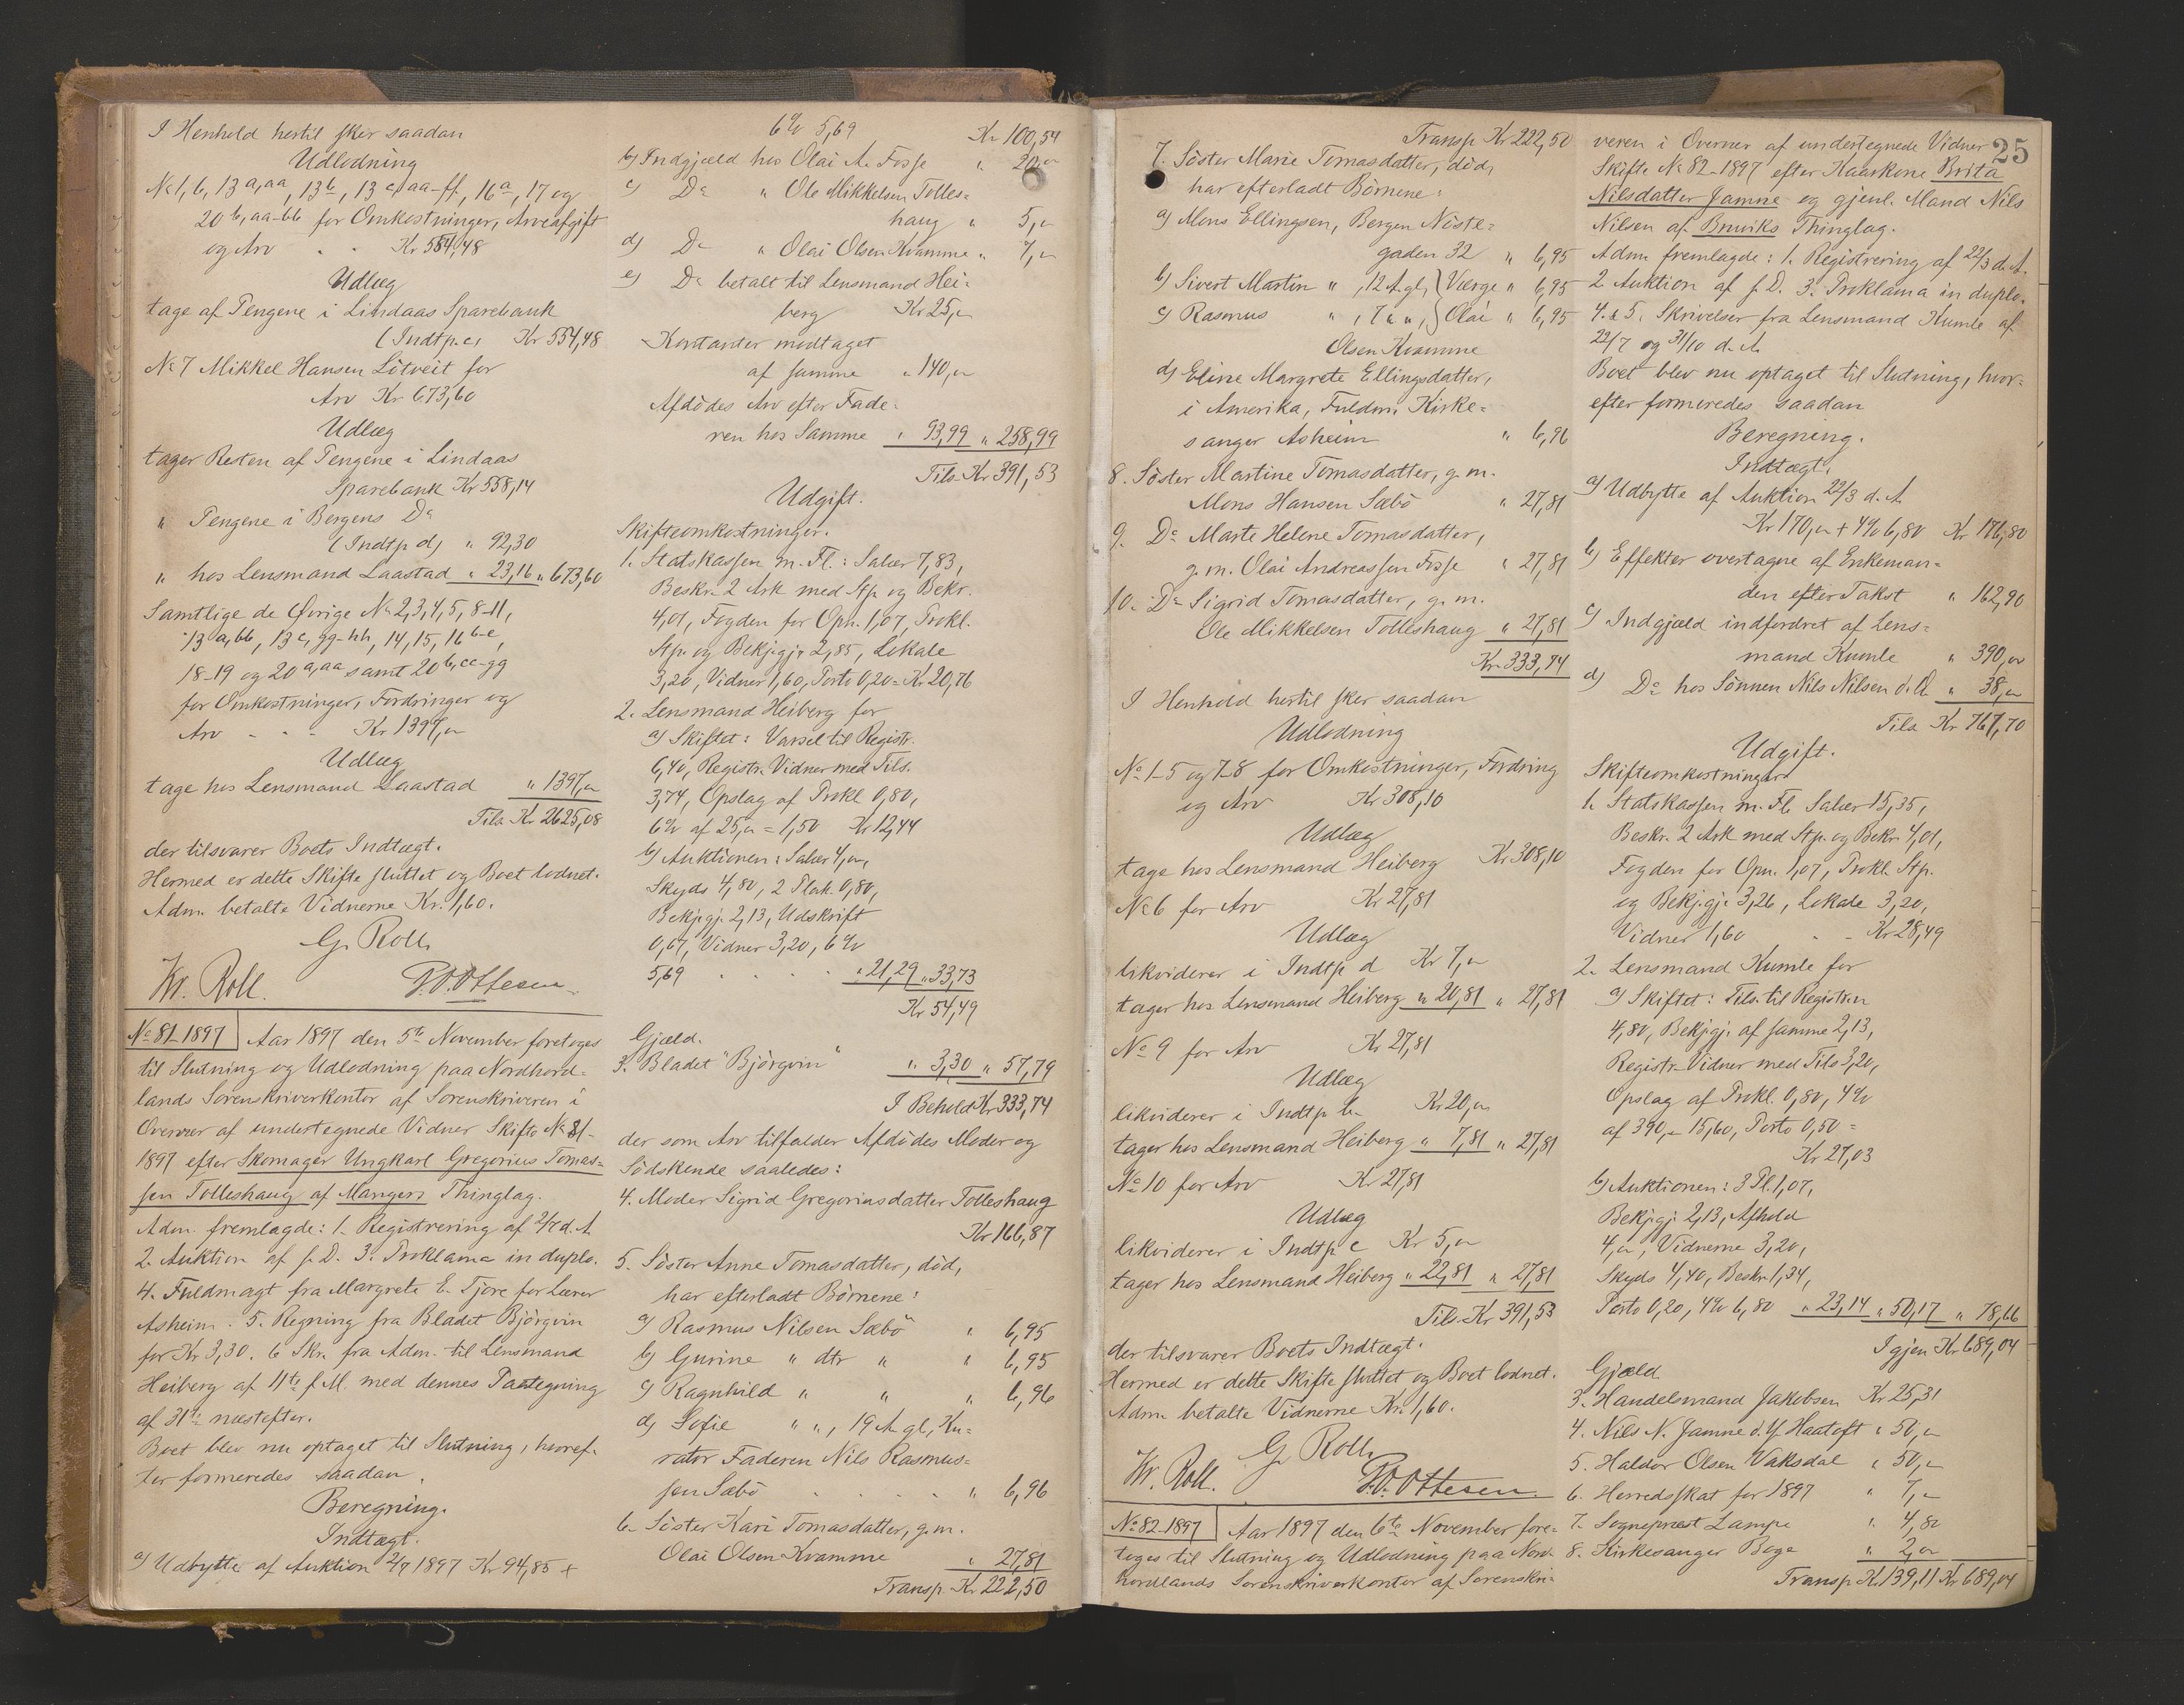 I Henhold hertil sker saadan
Udlodning
No 1, 6, 13 a, aa, 13 b, 13 c, aa-ff, 16 a, 17 og
20 b, aa-bb for Omkostninger, Arveafgift
og Arv " Kr 554,48
Udlæg
tage af Pengene i Lindaas Sparebank
(Indtp. c, Kr 554,48
No 7 Mikkel Hansen Lötveit for
Arv Kr 673,60
Udlæg
tager Resten af Pengene i Lindaas
Sparebank Kr 558,14
" Pengene i Bergens Do
(Indtp d) " 92,30
" hos Lensmand Laastad " 23,16 " 673,60
Samtlige de Øvrige No 2, 3, 4, 5, 8-11,
13 a, bb, 13 c, gg-hh, 14, 15, 16 b-e,
18-19 og 20 a, aa samt 20 b, cc-gg
for Omkostninger, Fordringer og
Arv - - - Kr 1397,"
Udlæg
tage hos Lensmand Laastad " 1397,"
Tils. Kr 2625,08
der tilsvarer Boets Indtægt.
Hermed er dette Skifte sluttet og Boet lodnet.
Adm. betalte Vidnerne Kr. 1,60.
G. Roll
Kr. Roll. P. O. Ottesen
No 81-1897 Aar 1897 den 5te November foretoges
til Slutning og Udlodning paa Nordhord-
lands Sorenskriverkontor af Sorenskriveren i
Overvær af undertegnede Vidner Skifte No 81-
1897 efter Skomager Ungkarl Gregorius Tomas-
sen Tolleshaug af Mangers Thinglag.
Adm. fremlagde: 1. Registrering af 2/7 d. A.
2. Auktion af s. D. 3. Proklama in duplo.
4. Fuldmagt fra Margrete E. Tjore for Lærer
Asheim. 5. Regning fra Bladet Björgvin
for Kr 3,30. 6 Skr. fra Adm. til Lensmand
Heiberg af 11te f. M. med dennes Paategning
af 31te næstefter.
Boet blev nu optaget til Slutning, hvoref-
ter formeredes saadan
Beregning.
Indtægt.
a) Udbytte af Auktion 2/7 1897 Kr 94,85 +
6% 5,69 Kr 100,54
b) Indgjæld hos Olai A. Fosse " 20,"
c) Do " Ole Mikkelsen Tolles-
haug " 5,"
d) Do " Olai Olsen Kvamme " 7,"
e) Do betalt til Lensmand Hei-
berg Kr 25,"
Kontanter modtaget
af samme " 140,"
Afdödes Arv efter Fade-
ren hos Samme " 93,99 " 258,99
Tils. Kr 391,53
Udgift.
Skifteomkostninger.
1. Statskassen m. Fl.: Salær 7,83,
Beskr. 2 Ark med Stp. og Bekr.
4,01, Fogden for Opn. 1,07, Prokl.
Stp. og Bekj.gj. 2,85, Lokale
3,20, Vidner 1,60, Porto 0,20 = Kr 20,76
2. Lensmand Heiberg for
a) Skiftet: Varsel til Registr.
6,40, Registr. Vidner med Tils.
3,74, Opslag af Prokl 0,80,
6% af 25," = 1,50 Kr 12,44
b) Auktionen: Salær 4,",
Skyds 4,80, 2 Plak. 0,80,
Bekj.gj. 2,13, Udskrift
0,67, Vidner 3,20, 6%
5,69 . . . . " 21,29 " 33,73
Kr 54,49
Gjæld.
3. Bladet "Björgvin" " 3,30 " 57,79
I Behold Kr 333,74
der som Arv tilfalder Afdödes Moder og
Södskende saaledes:
4. Moder Sigrid Gregoriusdatter Tolleshaug
Kr 166,87
5. Söster Anne Tomasdatter, död,
har efterladt Börnene:
a) Rasmus Nilsen Sæbö " 6,95
b) Gurine " dtr " " 6,95
c) Ragnhild " " " 6,96
d) Sofie " ", 19 A. gl., Ku-
rator Faderen Nils Rasmus-
sen Sæbö . . . . " 6,96
6. Söster Kari Tomasdatter, g. m.
Olai Olsen Kvamme " 27,81
Transp. Kr 222,50
Transp. Kr 222,50
7. Söster Marie Tomasdatter, död,
har efterladt Börnene:
a) Mons Ellingsen, Bergen Nöste-
gaden 32 " 6,95
b) Sivert Martin ", 12 A. gl., } Værge " 6,95
c) Rasmus ", 7 " ", } Olai " 6,95
Olsen Kvamme
d) Eline Margrete Ellingsdatter,
i Amerika, Fuldm. Kirke-
sanger Asheim " 6,96
8. Söster Martine Tomasdatter, g. m.
Mons Hansen Sæbö " 27,81
9. Do Marte Helene Tomasdatter,
g. m. Olai Andreassen Fosse " 27,81
10. Do Sigrid Tomasdatter, g. m.
Ole Mikkelsen Tolleshaug " 27,81
Kr. 333,74
I Henhold hertil sker saadan
Udlodning
No 1-5 og 7-8 for Omkostninger, Fordring
og Arv Kr 308,10
Udlæg
tage hos Lensmand Heiberg Kr 308,10
No 6 for Arv Kr 27,81
Udlæg
likviderer i Indtp. d Kr 7,"
tager hos Lensmand Heiberg " 20,81 " 27,81
No 9 for Arv Kr 27,81
Udlæg
likviderer i Indtp. b Kr 20,"
tager hos Lensmand Heiberg " 7,81 " 27,81
No 10 for Arv Kr 27,81
Udlæg
likviderer i Indtp. c Kr 5,"
tager hos Lensmand Heiberg " 22,81 " 27,81
Tils. Kr 391,53
der tilsvarer Boets Indtægt.
Hermed er dette Skifte sluttet og Boet lodnet.
Adm. betalte Vidnerne Kr. 1,60.
G. Roll
Kr. Roll. P. O. Ottesen
No 82-1897 Aar 1897 den 6te November fore-
toges til Slutning og Udlodning paa Nord-
hordlands Sorenskriverkontor af Sorenskri-
25
veren i Overvær af undertegnede Vidner
Skifte No 82-1897 efter Kaarkone Brita
Nilsdatter Jamne og gjenl. Mand Nils
Nilsen af Bruviks Thinglag.
Adm. fremlagde: 1. Registrering af 22/3 d. A.
2 Auktion af s. D. 3. Proklama in duplo.
4. & 5. Skrivelser fra Lensmand Kumle af
22/7 og 31/10 d. A.
Boet blev nu optaget til Slutning, hvor-
efter formeredes saadan
Beregning.
Indtægt.
a) Udbytte af Auktion 22/3 d. A.
Kr 170," + 4% 6,80 Kr 176,80
b) Effekter overtagne af Enkeman-
den efter Takst " 162,90
c) Indgjæld indfordret af Lens-
mand Kumle " 390,"
d) Do hos Sönnen Nils Nilsen d. Æ. " 38,"
Tils. Kr 767,70
Udgift.
Skifteomkostninger.
1. Statskassen m. Fl. Salær 15,35,
Beskr. 2 Ark med Stp. og Bekr. 4,01,
Fogden for Opn. 1,07, Prokl. Stp.
og Bekj.gj. 3,26, Lokale 3,20,
Vidner 1,60 - - Kr 28,49
2. Lensmand Kumle for
a) Skiftet: Tils. til Registr.n
4,80, Bekj.gj. af samme 2,13,
Registr. Vidner med Tils 3,20,
Opslag af Prokl. 0,80, 4%
af 390," 15,60, Porto 0,50 =
Kr 27,03
b) Auktionen: 3 Pl. 1,07,
Bekj.gj. 2,13, Afhold
4,", Vidnerne 3,20,
Skyds 4,40, Beskr. 1,34,
Porto 0,20, 4% 6,80 " 23,14 " 50,17 " 78,66
Igjen Kr 689,04
Gjæld.
3. Handelsmand Jakobsen Kr 25,31
4. Nils N. Jamne d. Y. Haatoft " 50,"
5. Haldor Olsen Vaksdal " 50,"
6. Herredsskat for 1897 " 7,"
7. Sogneprest Lampe " 4,80
8. Kirkesanger Boge " 2,"
Transp. Kr 139,11 Kr 689,04